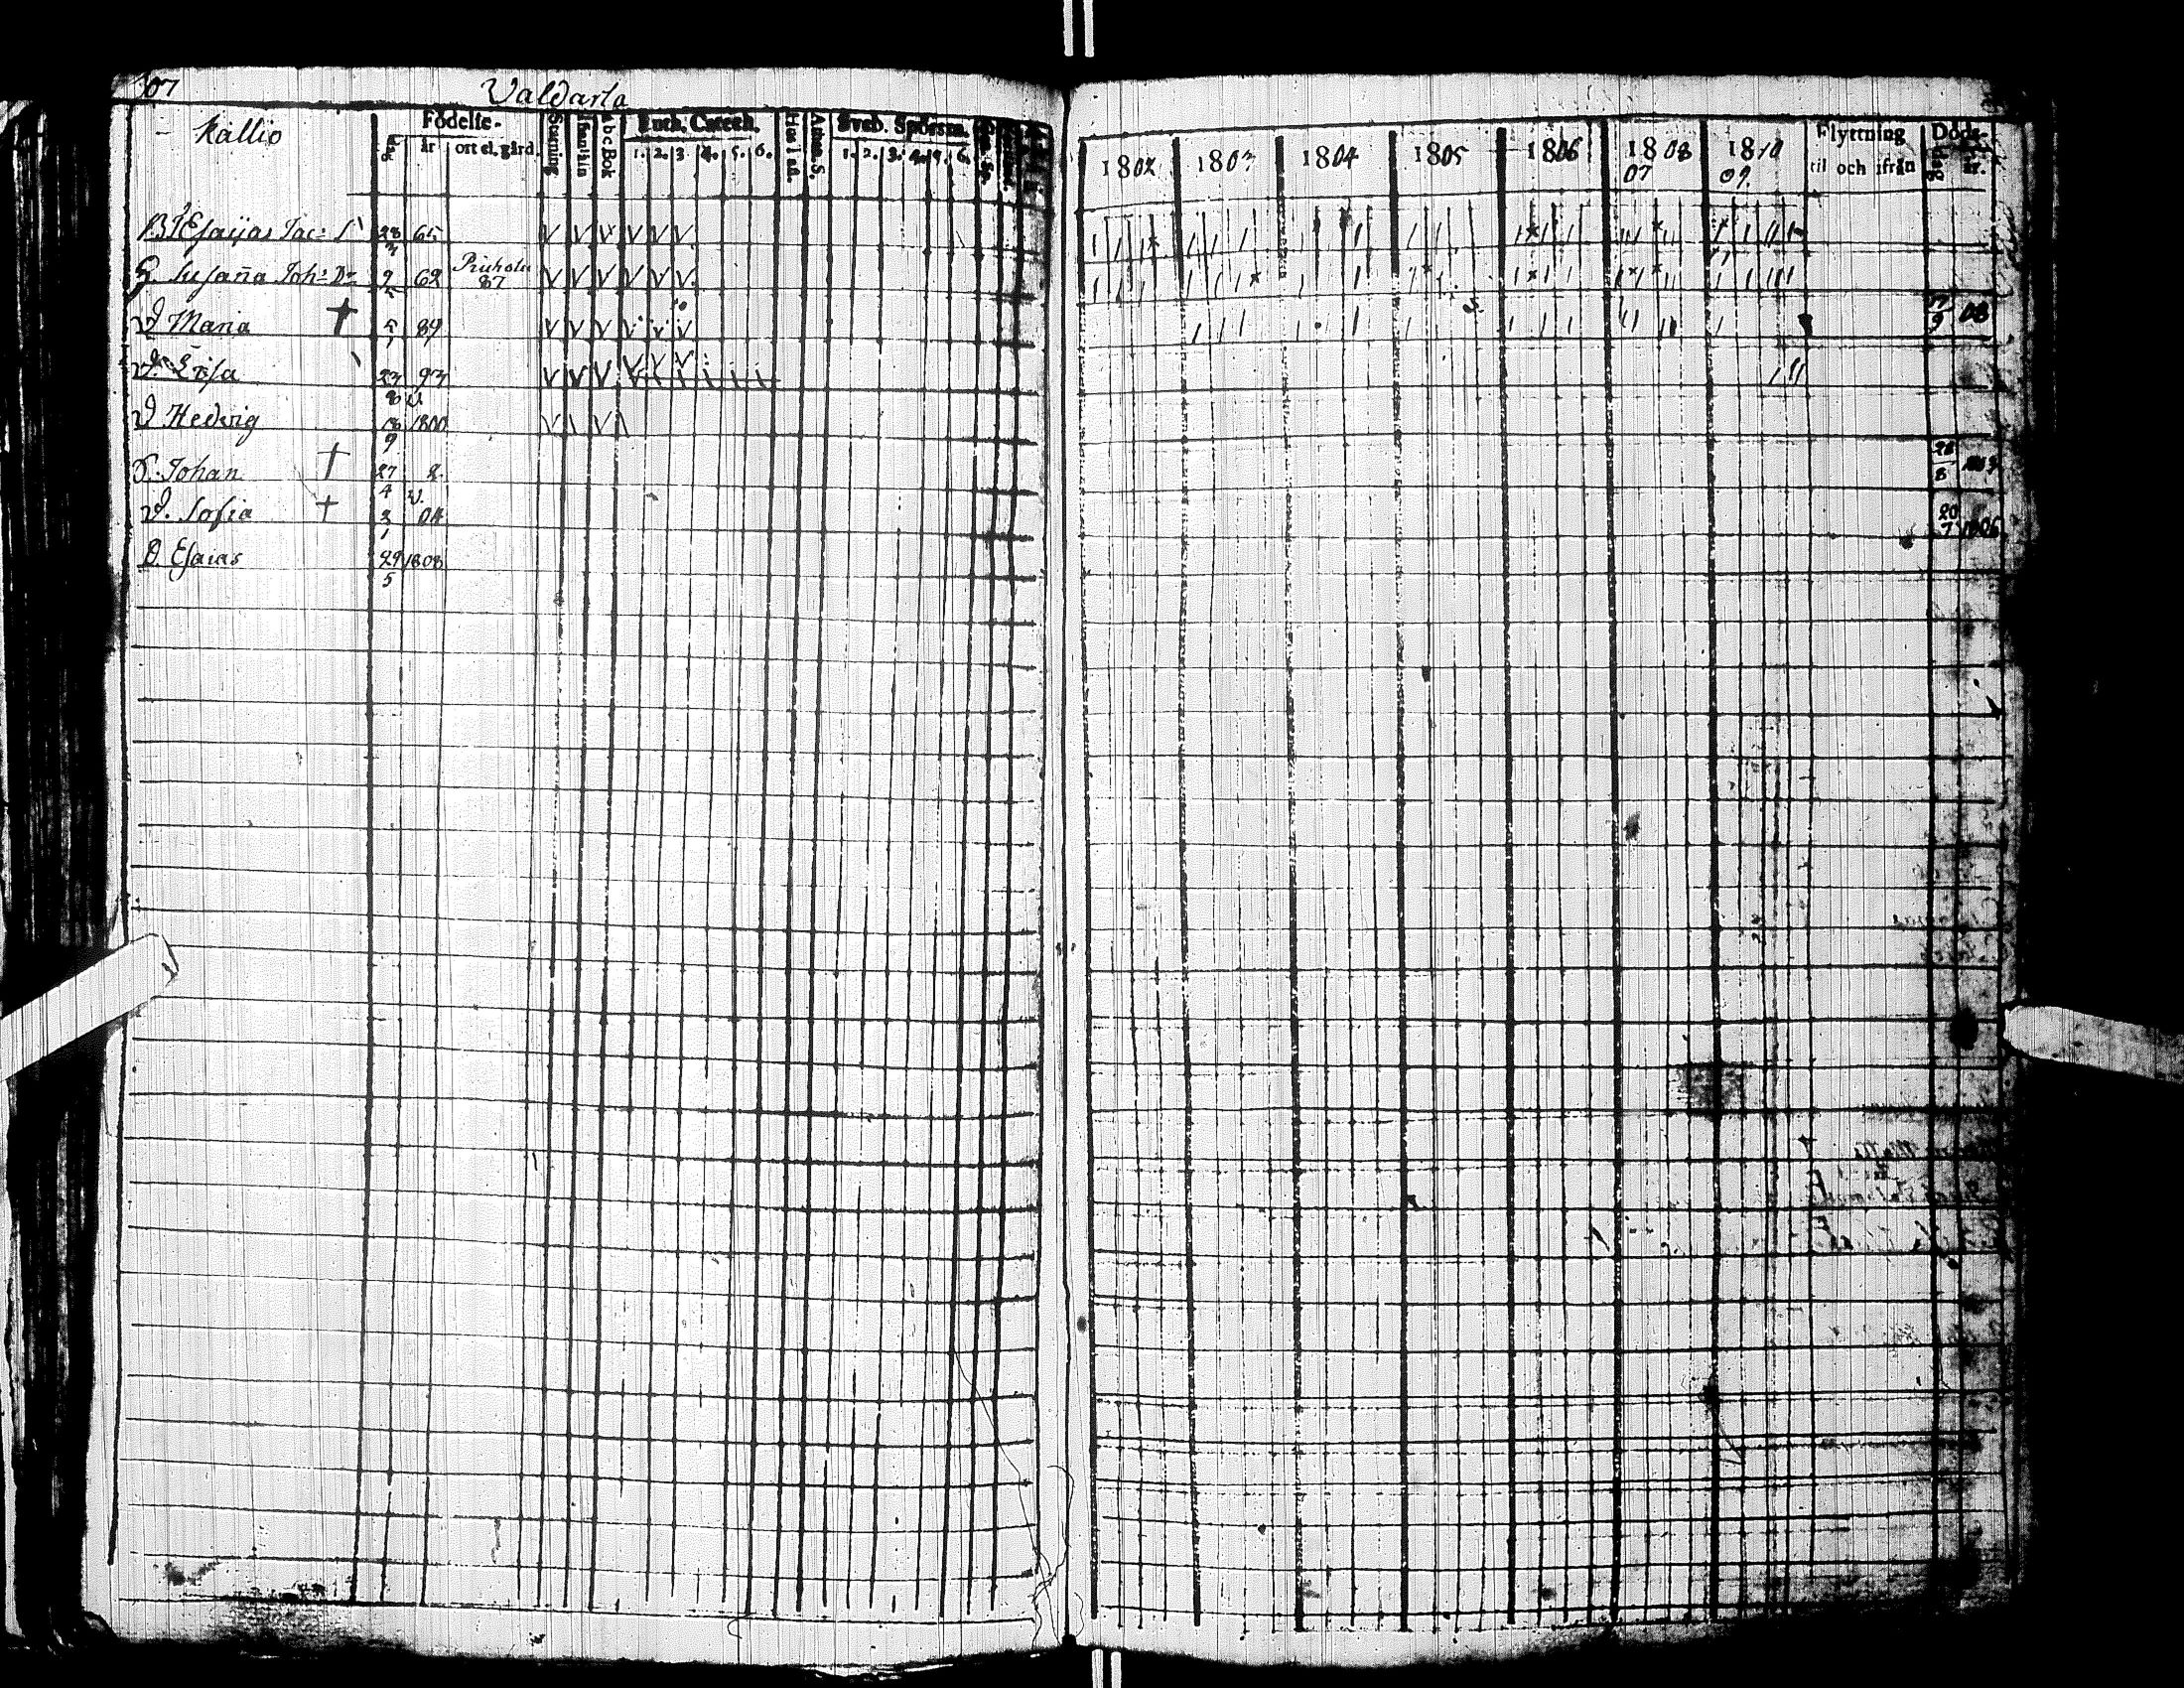 107
Valdarla
Kallio
Födelse-
dag
år
ort el. gård.
Stafning
Innanläsn
a b c Bok
Luth. Catech.
1. 2. 3. 4. 5. 6.
Athan. S.
Sveb. Spörsm.
1. 2. 3. 4. 5. 6.
1802 1803 1804 1805 1806 1808 1810
07 09
Flyttning
til och ifrån
Döds-
dag
år.
Esaijas Jac: S 28/3 65
Susaña Joh: Dr 9 62 87
D Maria † 5/1 89 9 08
D. Lisa 23/8 93
D Hedvig 18/9 1800
S. Johan † 27/4 2. 28/8
D. Sofia † 2/1 04 20/7 1806
Esaias 29/5 1808